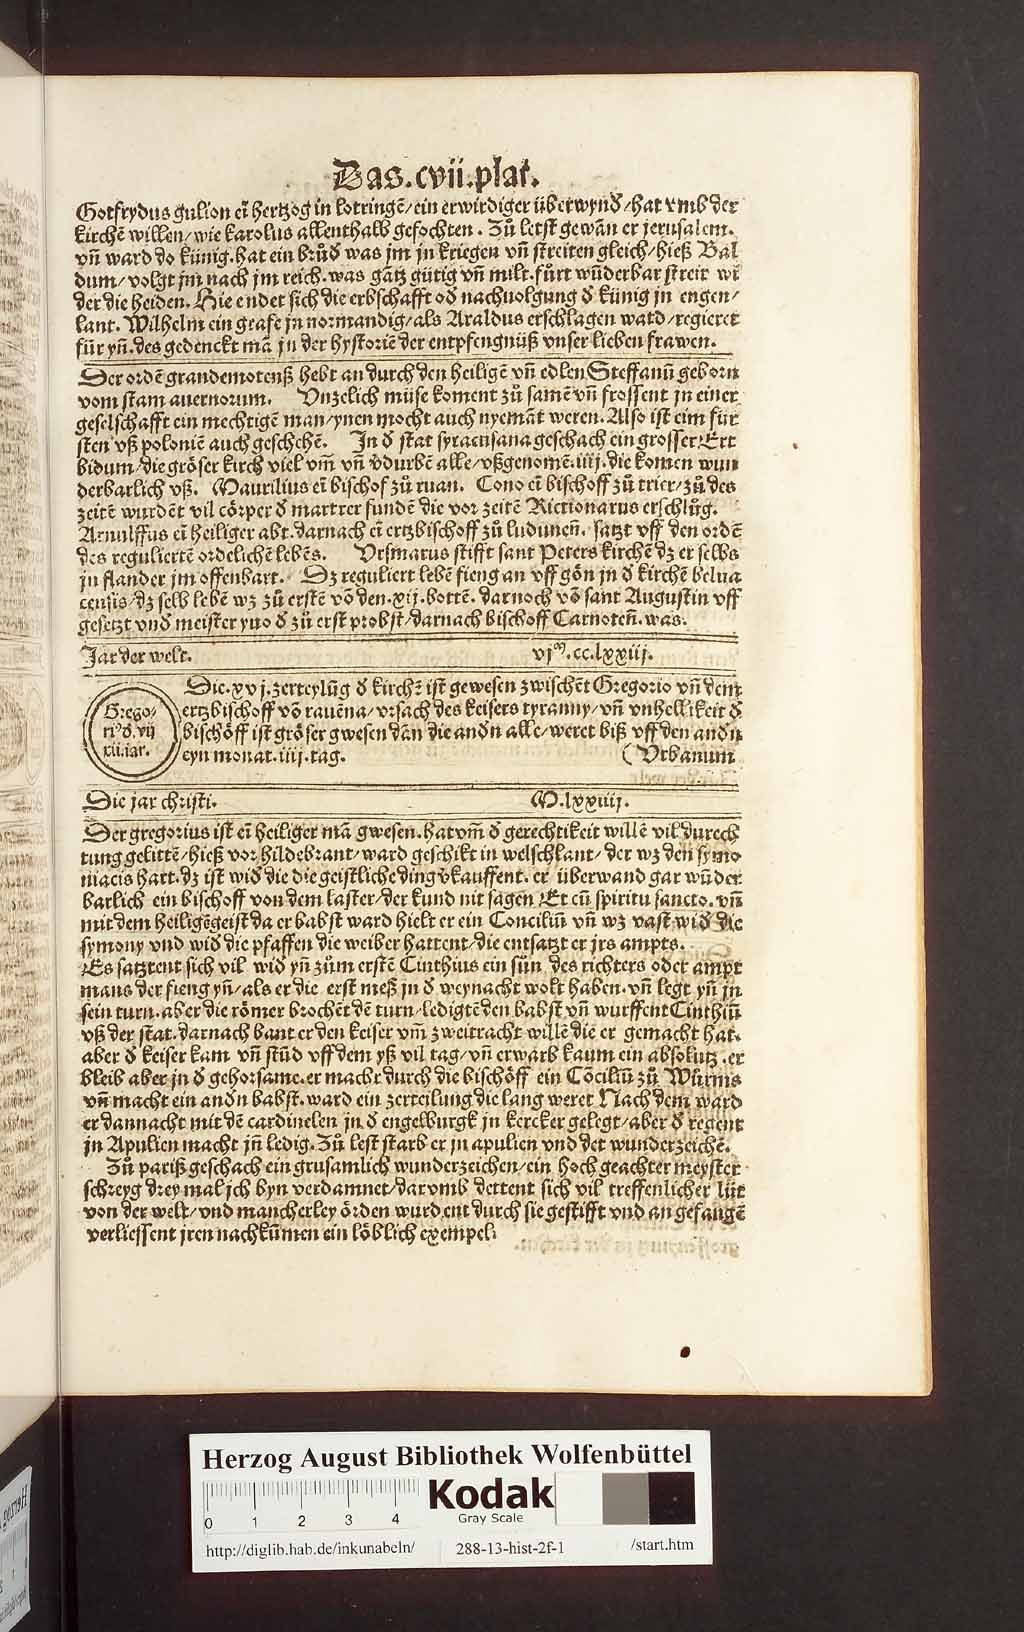 Das.cvii.plat.
Gotfrydus gulion eī hertzog in lotringē/ein erwirdiger überwynd/hat vmb der
kirchē willen/wie karolus allenthalb gefochten. Zů letst gewan er jerusalem.
vn̄ ward do künig.hat ein brůd was jm jn kriegen vn̄ streiten gleich/hieß Bal
dum/volgt jm nach jm reich.was gātz gütig vn̄ milt.fůrt wūderbar streit wi
der die heiden. Hie endet sich die erbschafft od nachuolgung d̄ künig jn engen/
lant. Wilhelm ein grafe jn normandig/als Araldus erschlagen ward/regieret
für yn̄.des gedenckt mā jn der hystoriē der entpfengnüß vnser lieben frawen.
Der ordē grandemotenß hebt an durch den heiligē vn̄ edlen Steffanū geborn
vom stam auernorum. Vnzelich müse koment zů samē vn̄ frossent jn einer
geselschafft ein mechtigē man/ynen mocht auch nyemāt weren. Also ist eim für
sten vß poloniē auch geschehē. In d̄ stat syracusana geschach ein grosser Ert
bidum/die gröser kirch viel vm̄ vn̄ v̄durbē alle/vßgenomē.iij.die komen wun
derbarlich vß. Maurilius eī bischof zů ruan. Cono eī bischoff zů trier/zů des
zeitē wurdēt vil cörper d̄ martrer fundē die vor zeitē Rictionarus erschlůg.
Arnulffus eī heiliger abt.darnach eī ertzbischoff zů ludunen̄. satzt vff den ordē
des regulierte ordelichē lebēs. Vrsmarus stifft sant Peters kirchē dz er selbs
jn flander jm offenbart. Dz reguliert lebē fieng an vff gōn jn d̄ kirchē belua
censis/dz selb lebē wz zů erstē vō den.xij.bottē. darnoch vō sant Augustin vff
gesetzt vnd meister yuo d̄ zů erst probst/darnach bischoff Carnoten̄. was.
Jar der welt. vjm.cc.lxxiij.
Grego/
riꝰ d̄.vij
xii.iar.
Die.xvj.zerteylūg d̄ kirchē ist gewesen zwischēt Gregorio vn̄ dem
ertzbischoff vō rauēna/vrsach des keisers tyranny/vn̄ vnhellikeit d̄
bischöff ist gröser gwesen dān die andn alle/weret biß vff den andn
eyn monat.iiij.tag. (Vrbanum
Die jar christi. M.lxxiiij.
Der gregorius ist eī heiliger mā gwesen.hat vm̄ d̄ gerechtikeit willē vil durech
tung gelittē/hieß vor hildebrant/ward geschikt in welschlant/der wz den symo
niacis hart.dz ist wid die die geistliche ding v̄kauffent.er überwand gar wūder
barlich ein bischoff von dem laster/der kund nit sagen Et cū spiritu sancto.vn̄
mit dem heiligē geist da er babst ward hielt er ein Conciliū vn̄ wz vast wid die
symony vnd wid die pfaffen die weiber hattent/die entsatzt er jrs ampts.
Es satztent sich vil wid yn̄ zům erstē Cinthius ein sůn des richters oder ampt
mans der fieng yn̄/als er die erst meß jn d̄ weynacht wolt haben.vn̄ legt yn̄ jn
sein turn.aber die römer brochēt dē turn/ledigtē den babst vn̄ wurffent Cinthiū
vß der stat.darnach bant er den keiser vm̄ zweitracht willē die er gemacht hat.
aber d̄ keiser kam vn̄ stůd vff dem yß vil tag/vn̄ erwarb kaum ein absolutz.er
bleib aber jn d̄ gehorsame.er macht durch die bischöff ein Cōciliū zů Würms
vn̄ macht ein andn babst.ward ein zerteilung die lang weret Nach dem ward
er dannacht mit dē cardinelen jn d̄ engelburgk jn kercker gelegt/aber d̄ regent
jn Apulien macht jn̄ ledig.Zů lest starb er jn apulien vnd det wunderzeichē.
Zů pariß geschach ein grusamlich wunderzeichen/ein hoch geachter meyster
schreyg drey mal jch byn verdamnet/darvmb dettent sich vil treffenlicher lüt
von der welt/vnd mancherley örden wurdent durch sie gestifft vnd angefangē
verliessent jren nachkūmen ein löblich exempel.
Herzog August Bibliothek Wolfenbüttel
0 1 2 3 4
Kodak
Gray Scale
http://diglib.hab.de/inkunabeln/ 288-13-hist-2f-1 /start.htm